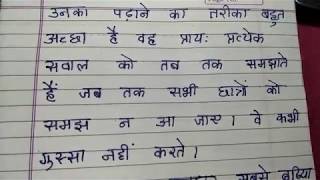 उनका पढ़ाने का तरीका बहुत
अच्छा है वह प्रायः प्रत्येक
सवाल को तब तक समझाते
हैं जब तक सभी छात्रों को
समझ न आ जाए। वे कभी
गुस्सा नहीं करते।
सबसे बढ़िया